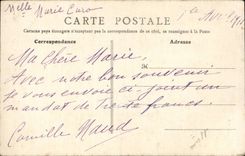 Melle Marie
CARTE POSTALE
Certains pays étrangers n'acceptent pas la correspondance de ce côté, se renseigner à la Poste
Correspondance
Adresse
Ma Chère Marie,
Avec notre bon souvenir
je vous envoie ci joint un
mandat de trente francs.
Camille